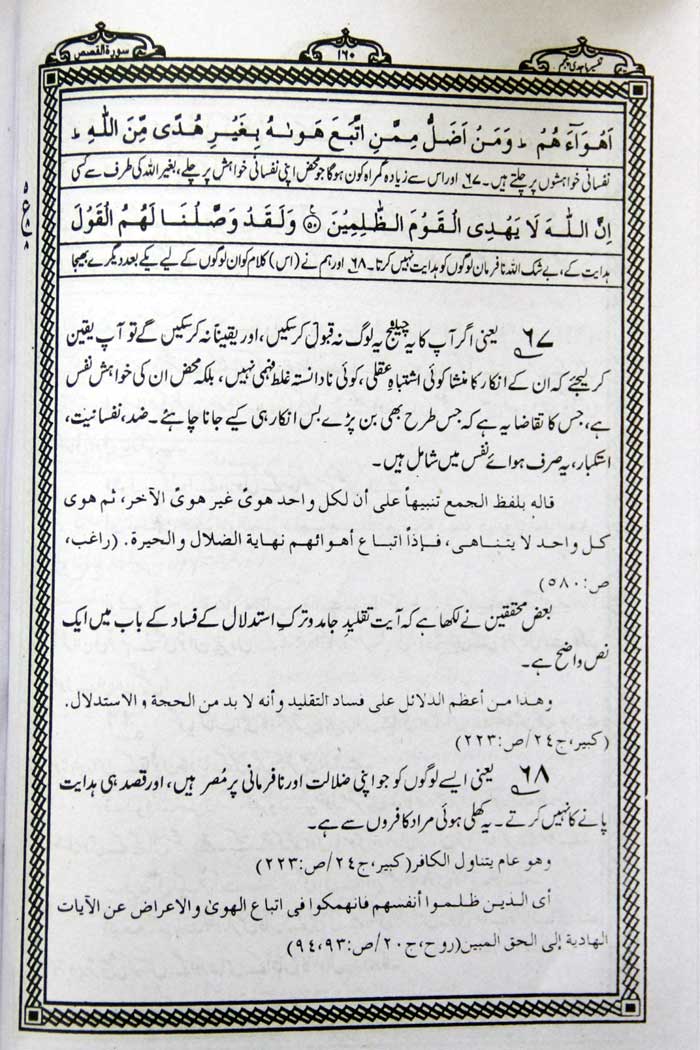 تفسیر ماجدی پنجم
۱۶۰
سورة القصص
اَهْوَآءَهُمْ ؕ وَمَنْ اَضَلُّ مِمَّنِ اتَّبَعَ هَوٰىهُ بِغَيْرِ هُدًى مِّنَ اللّٰهِ ؕ
نفسانی خواہشوں پر چلتے ہیں۔ ۶۷ اور اس سے زیادہ گمراہ کون ہوگا جو محض اپنی نفسانی خواہش پر چلے، بغیر اللہ کی طرف سے کسی
اِنَّ اللّٰهَ لَا يَهْدِى الْقَوْمَ الظّٰلِمِيْنَ ۵۰ وَلَقَدْ وَصَّلْنَا لَهُمُ الْقَوْلَ
ہدایت کے، بے شک اللہ نافرمان لوگوں کو ہدایت نہیں کرتا۔ ۶۸ اور ہم نے (اس) کلام کو ان لوگوں کے لیے یکے بعد دیگرے بھیجا
ع
۶۷ یعنی اگر آپ کا یہ چیلنج یہ لوگ نہ قبول کرسکیں، اور یقیناً نہ کرسکیں گے تو آپ یقین
کر لیجئے کہ ان کے انکار کا منشا کوئی اشتباہِ عقلی، کوئی نادانستہ غلط فہمی نہیں، بلکہ محض ان کی خواہش نفس
ہے، جس کا تقاضا یہ ہے کہ جس طرح بھی بن پڑے بس انکار ہی کیے جانا چاہئے۔ ضد، نفسانیت،
استکبار، یہ صرف ہوائے نفس میں شامل ہیں۔
قاله بلفظ الجمع تنبيهاً على أن لكل واحد هوىً غير هوىً الآخر، ثم هوى
كل واحد لا يتناهى، فإذاً اتباع أهوائهم نهاية الضلال والحيرة. (راغب،
ص:۵۸۰)
بعض محققین نے لکھا ہے کہ آیت تقلیدِ جامد و ترکِ استدلال کے فساد کے باب میں ایک
نص واضح ہے۔
وهذا من أعظم الدلائل على فساد التقليد وأنه لا بد من الحجة و الاستدلال.
(كبير، ج۲۴/ص:۲۲۳)
۶۸ یعنی ایسے لوگوں کو جو اپنی ضلالت اور نافرمانی پر مُصر ہیں، اور قصد ہی ہدایت
پانے کا نہیں کرتے۔ یہ کھلی ہوئی مراد کافروں سے ہے۔
وهو عام يتناول الكافر (كبير، ج۲۴/ص:۲۲۳)
أى الذين ظلموا أنفسهم فانهمكوا فى اتباع الهوىٰ والاعراض عن الآيات
الهادية إلى الحق المبين (روح، ج۲۰/ص:۹۳،۹۴)